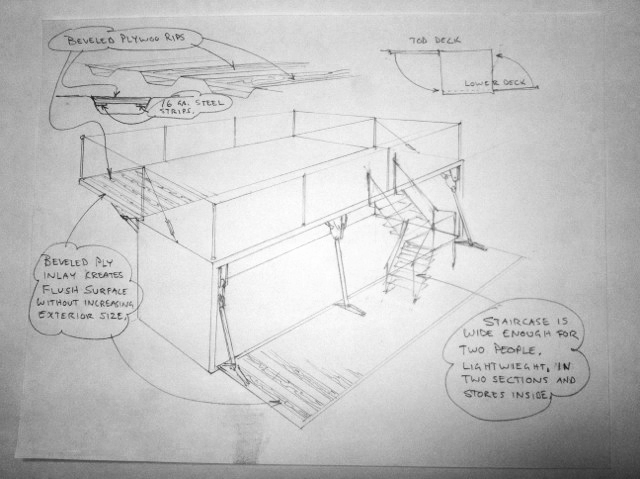 BEVELED PLYWOO RIPS
16 GA. STEEL
STRIPS.
TOP DECK
LOWER DECK
BEVELED PLY
INLAY CREATES
FLUSH SURFACE
WITHOUT INCREASING
EXTERIOR SIZE.
STAIRCASE IS
WIDE ENOUGH FOR
TWO PEOPLE,
LIGHTWIEGHT, IN
TWO SECTIONS AND
STORES INSIDE.